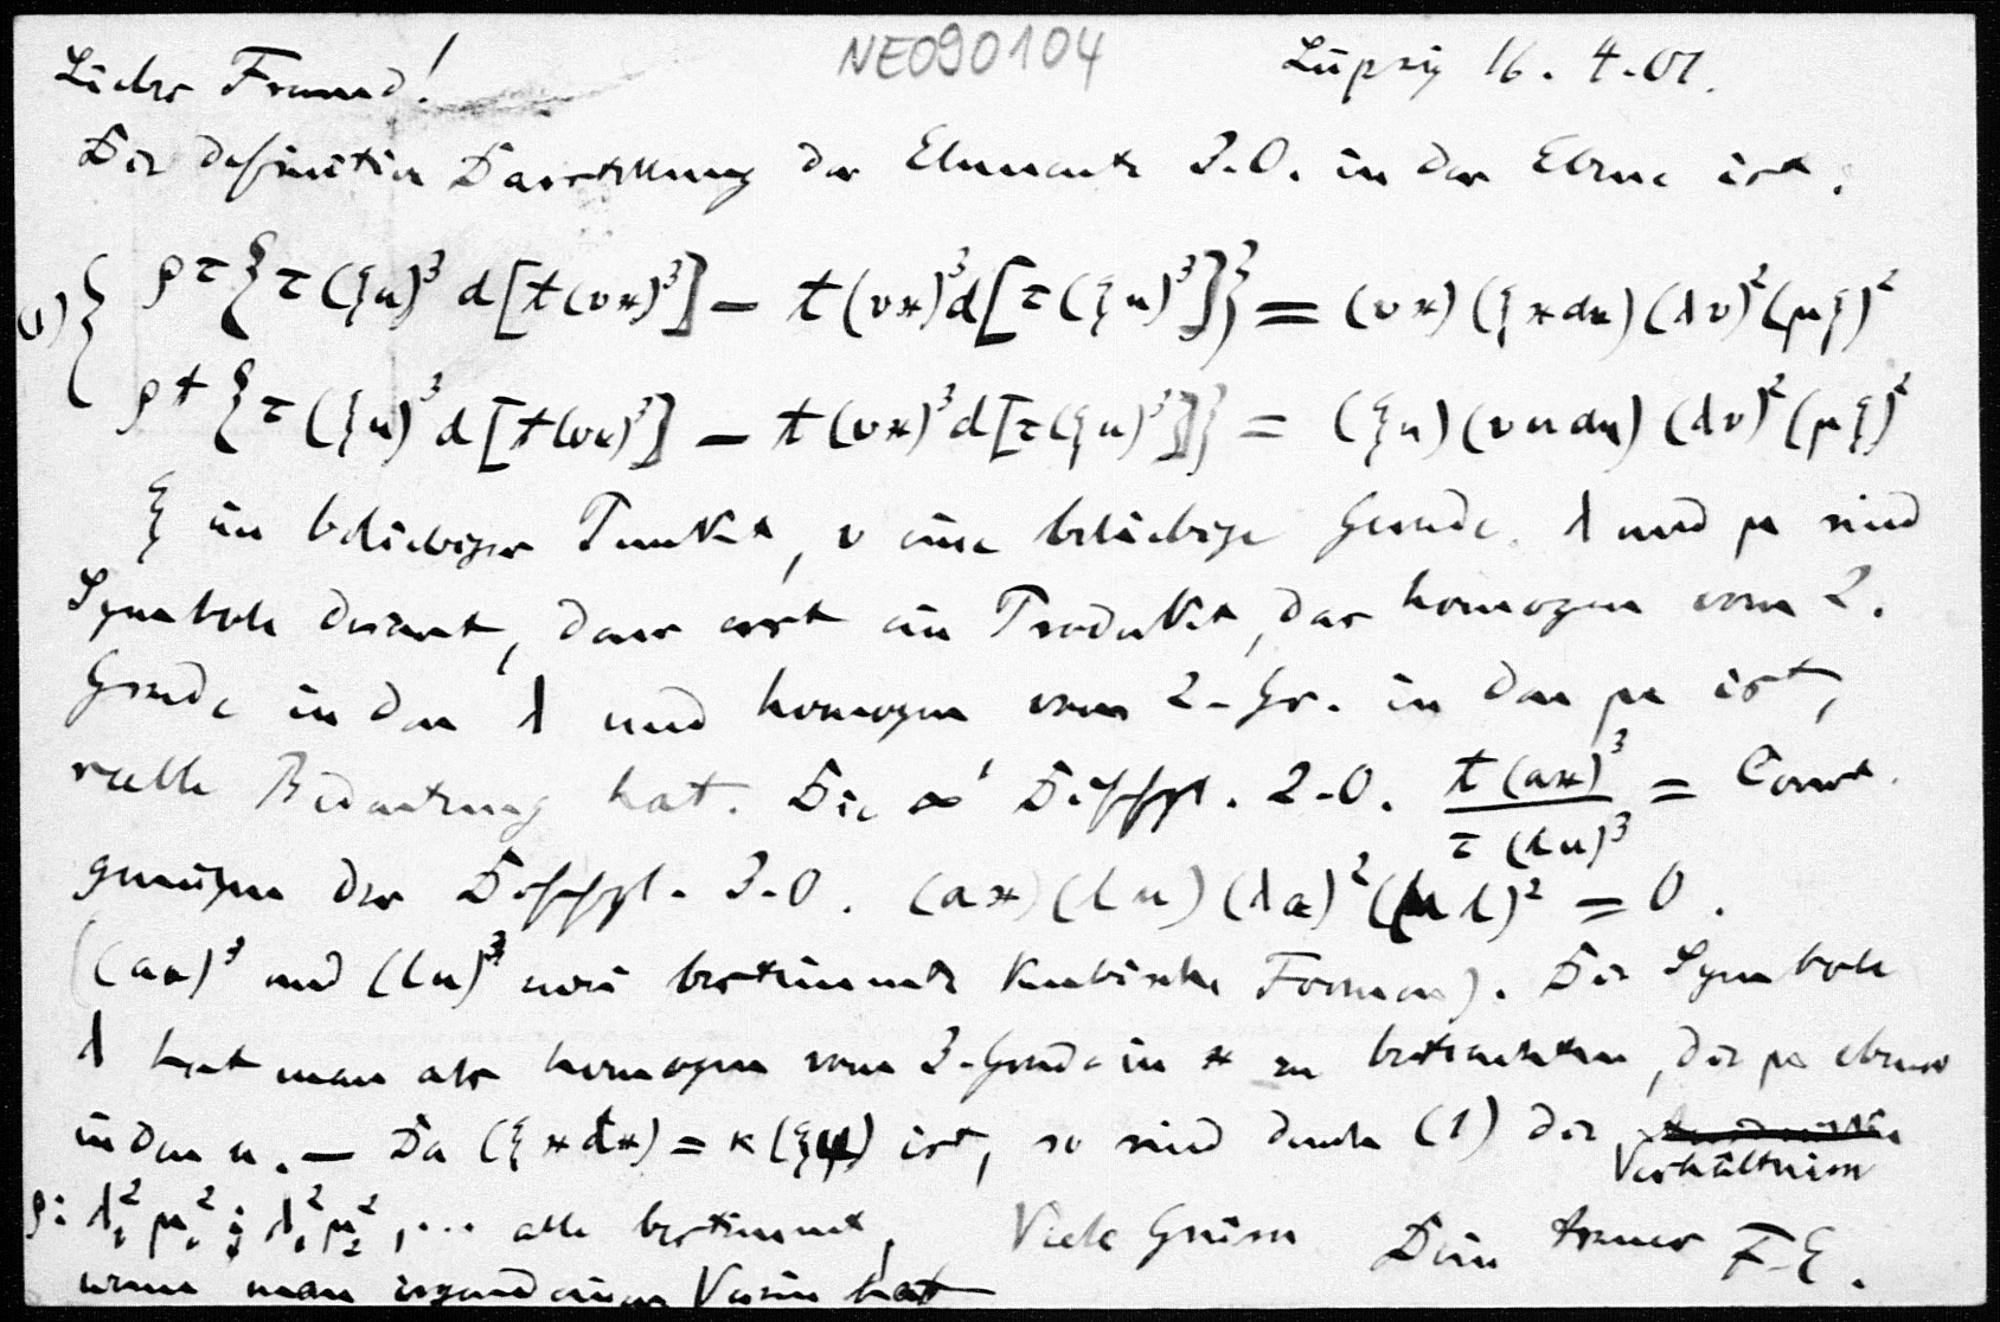 NE090104
Lieber Freund! Leipzig 16. 4. 01.
Die definitive Darstellung der Elemente 3.O. in der Ebene ist.
(1) { ρτ{τ(ξu)³ d[t(vx)³] — t(vx)³d[τ(ξu)³]}³ = (vx)(ξxdx)(λv)²(μξ)²
ρt{τ(ξu)³d[t(vx)³] — t(vx)³d[τ(ξu)³]} = (ξu)(vudu)(λv)²(μξ)²
ξ ein beliebiger Punkt, v eine beliebige Gerade. λ und μ sind
Symbole derart, dass erst ein Produkt, das homogen vom 2.
Grade in den λ und homogen vom 2-Gr. in den μ ist,
reelle Bedeutung hat. Die ∞¹ Diffgl. 2-O. t(ax)³/τ(lu)³ = Const.
genügen der Diffgl. 3-O. (ax)(lu)(λa)²(μl)² = 0.
((ax)³ und (lu)³ zwei bestimmte kubische Formen). Die Symbole
λ hat man als homogen vom 3-Grade in x zu betrachten, die μ ebenso
in den u. — Da (ξxdx) = κ(ξu) ist, so sind durch (1) die
Verhältnisse
ρ: λ₁²μ₁² : λ₁²μ₂², ... alle bestimmt, Viele Grüsse Dein treuer F. E.
wenn man irgend einen Verein hat